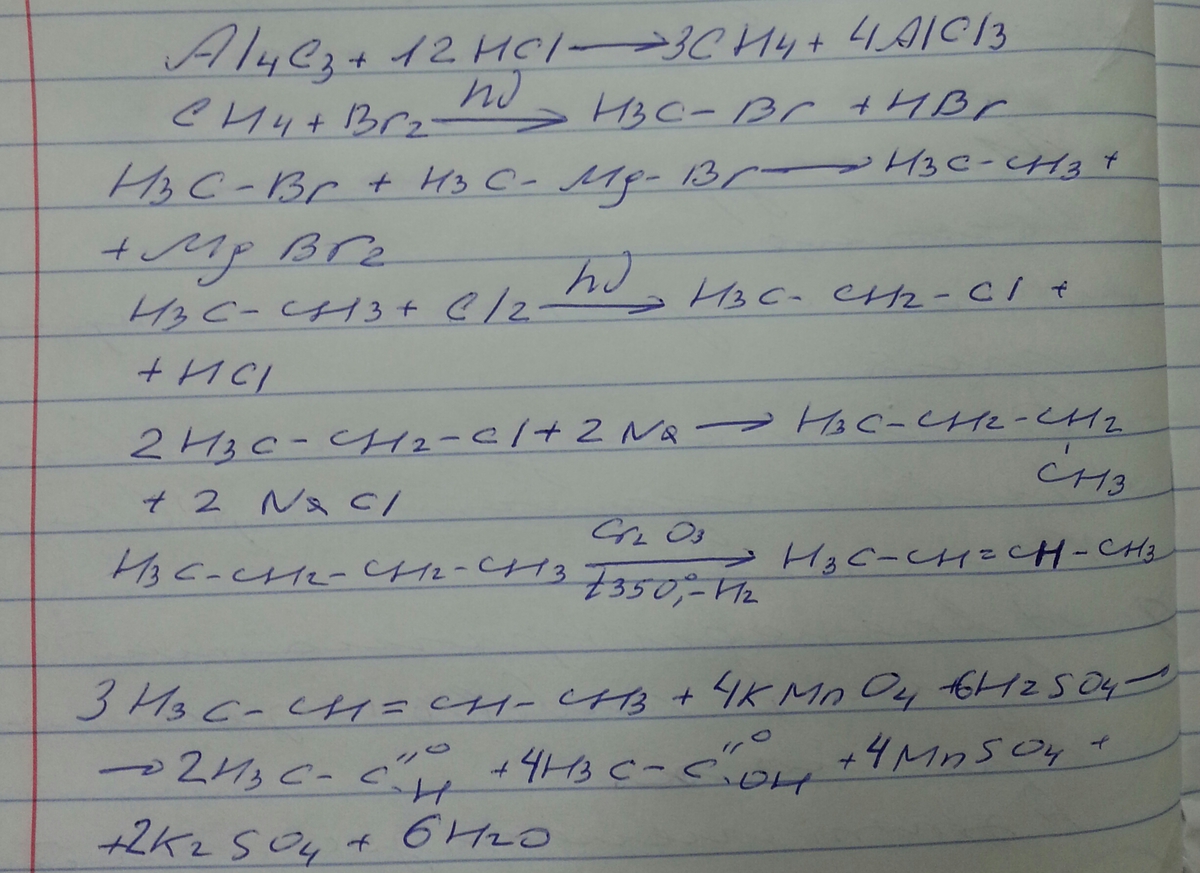 Al4C3 + 12HCl → 3CH4 + 4AlCl3
hν
CH4 + Br2 → H3C - Br + HBr
H3C - Br + H3C - Mg - Br → H3C - CH3 +
+ Mg Br2
hν
H3C - CH3 + Cl2 → H3C - CH2 - Cl +
+ HCl
2H3C - CH2 - Cl + 2Na → H3C - CH2 - CH2
CH3
+ 2 NaCl
Cr2O3
H3C - CH2 - CH2 - CH3 → H3C - CH = CH - CH3
t350°, -H2
3H3C - CH = CH - CH3 + 4KMnO4 + 6H2SO4 →
→ 2H3C - C "O H + 4H3C - C "O OH + 4MnSO4 +
+ 2K2SO4 + 6H2O